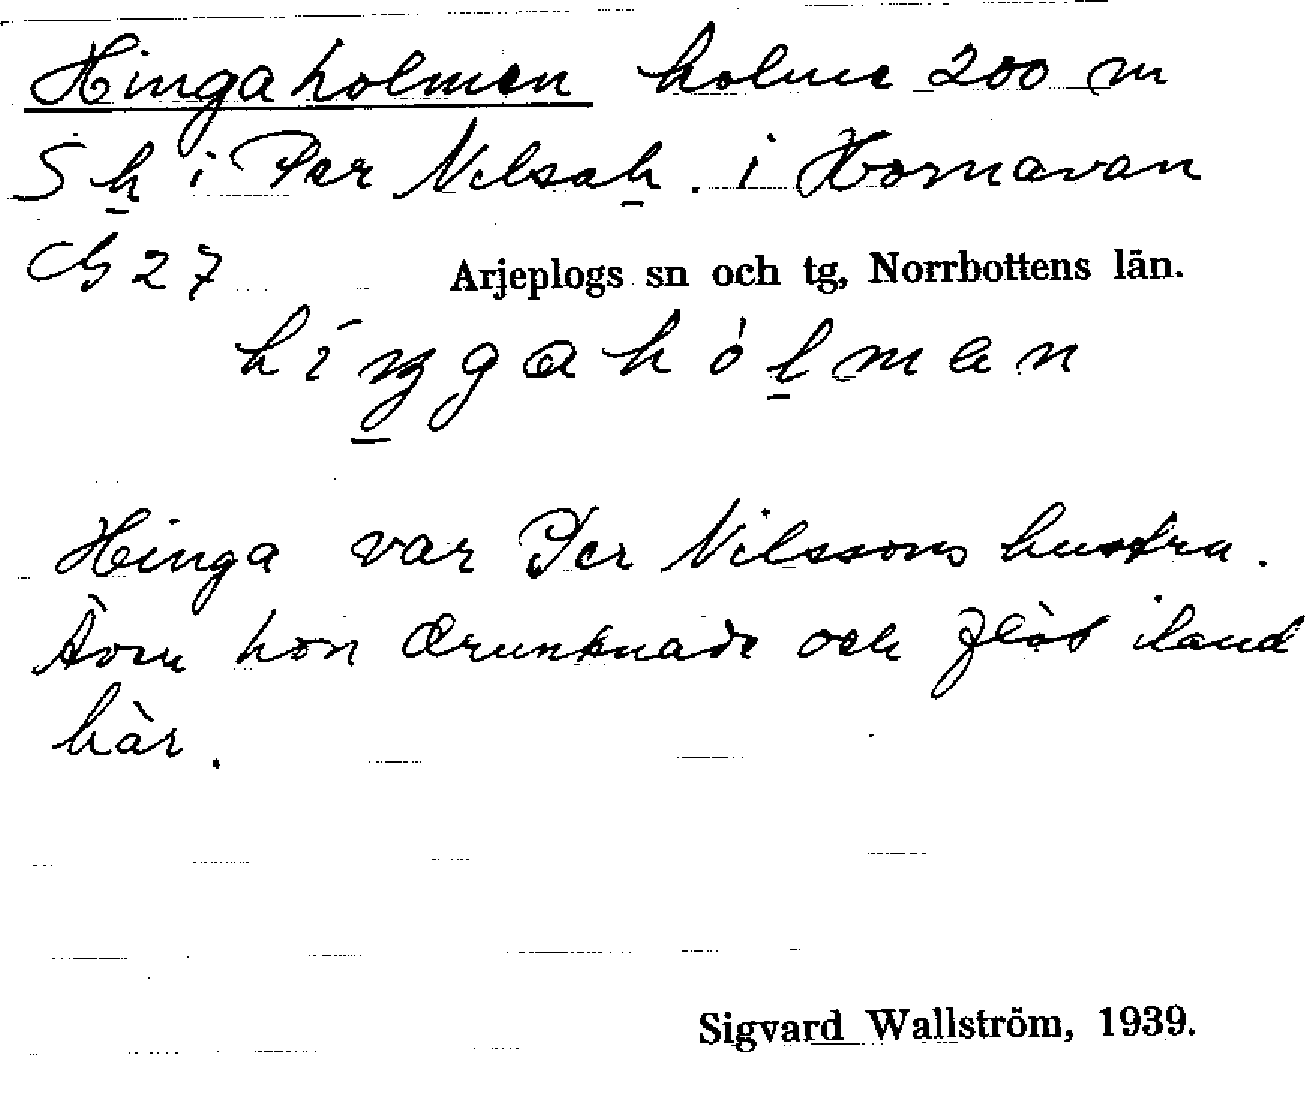 Hingaholmen holme 200 m
S h i Per Nilsah. i Hornavan
G 27 Arjeplogs sn och tg, Norrbottens län.
híŋgahólmen
Hinga var Per Nilssons hustru.
Även hon drunknade och flöt iland
här.
Sigvard Wallström, 1939.